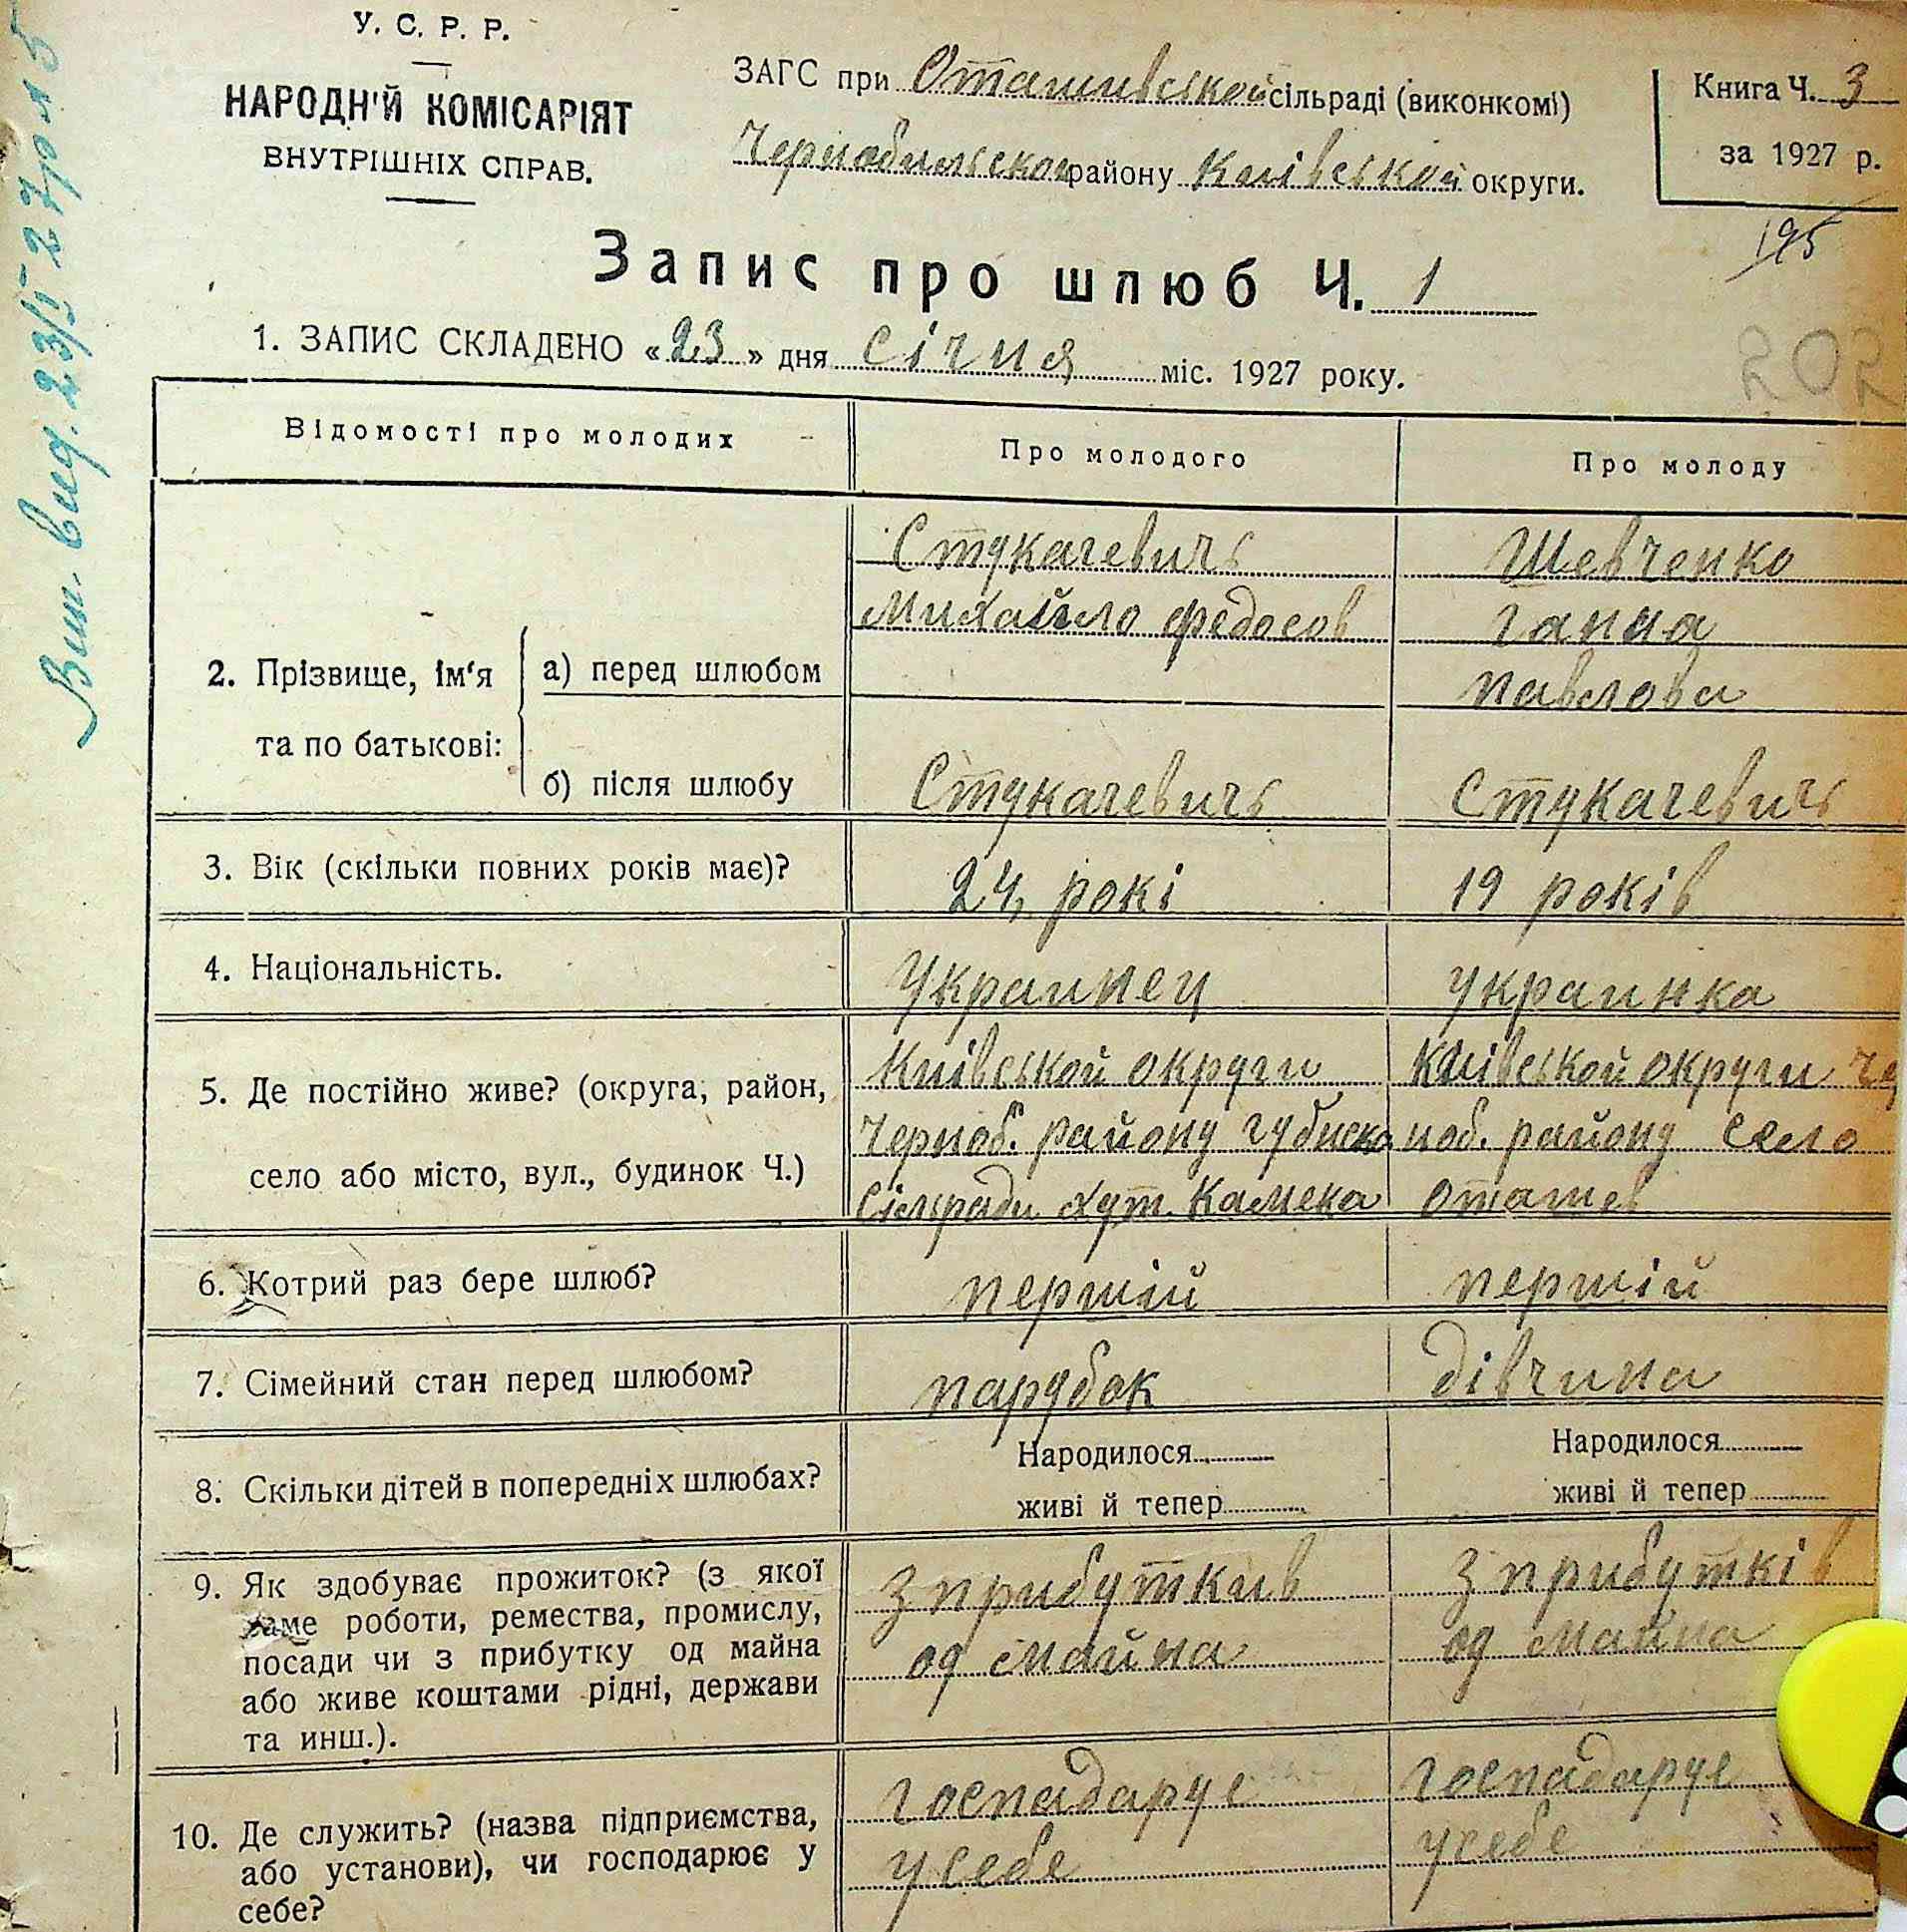 У. С. Р. Р.
НАРОДН'Й КОМІСАРІЯТ
ВНУТРІШНІХ СПРАВ.
ЗАГС при Оташивськой сільраді (виконкомі)
Чернобильской району Київськой округи.
Книга Ч. 3
за 1927 р.
195
202
Вип. вид. 23/I 27 р. 5
Запис про шлюб Ч. 1
1. ЗАПИС СКЛАДЕНО «23» дня січня міс. 1927 року.
Відомості про молодих
Про молодого
Про молоду
2. Прізвище, ім'я та по батькові:
а) перед шлюбом
Стукачевичь
Михайло Федосов
Шевченко
Ганна
Павлова
б) після шлюбу
Стукачевичь
Стукачевичь
3. Вік (скільки повних років має)?
24 рокі
19 років
4. Національність.
Украинец
Украинка
5. Де постійно живе? (округа, район,
село або місто, вул., будинок Ч.)
Київськой округи
Черноб. району Губиско
Сільради хут. Камека
Київськой округи Чер
ноб. району село
Оташев
6. Котрий раз бере шлюб?
першій
першій
7. Сімейний стан перед шлюбом?
парубок
дівчина
8. Скільки дітей в попередніх шлюбах?
Народилося
живі й тепер
Народилося
живі й тепер
9. Як здобуває прожиток? (з якої
саме роботи, ремества, промислу,
посади чи з прибутку од майна
або живе коштами рідні, держави
та инш.).
З прибуткив
од майна
З прибутків
од майна
10. Де служить? (назва підприємства,
або установи), чи господарює у
себе?
госпадаруе
у себе
госпадаруе
у себе